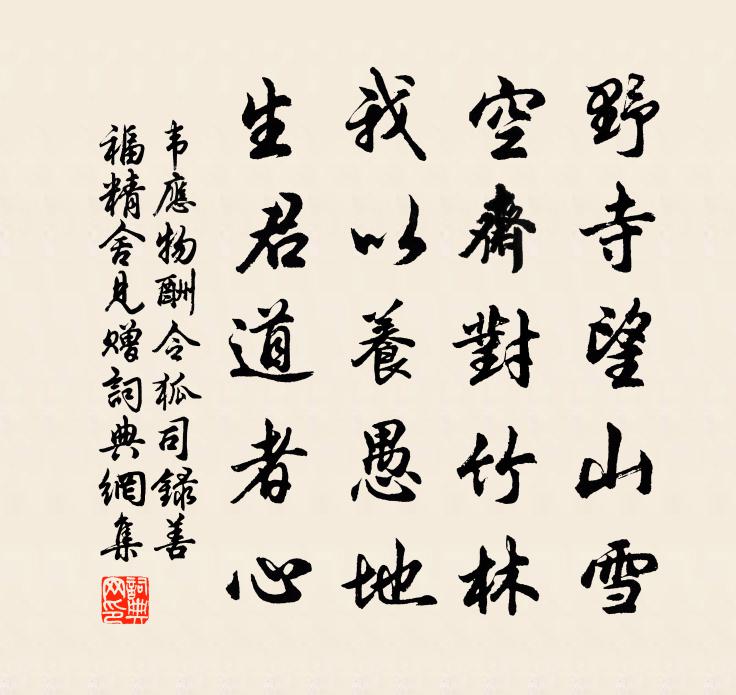 野寺望山雪
空齋對竹林
我以養愚地
生君道者心
韦應物酬令狐司録善
福精舍見贈詞典網集
詞典网印